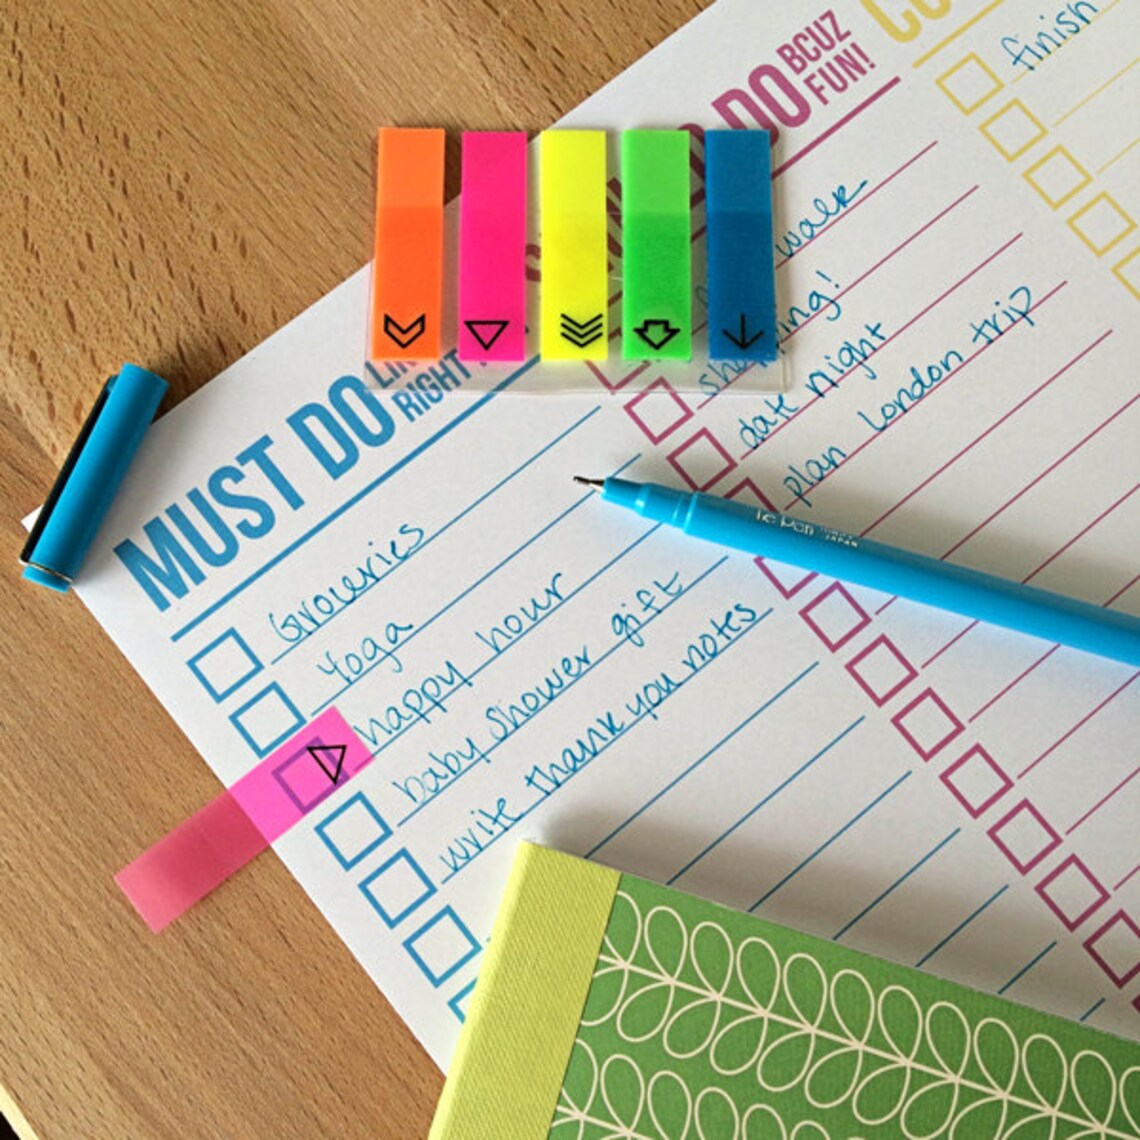 MUST DO
RIGHT
Groceries
Yoga
happy hour
baby shower gift
write thank you notes
DO BCUZ
FUN!
walk
date night
plan London trip
finish
Le Pen
JAPAN